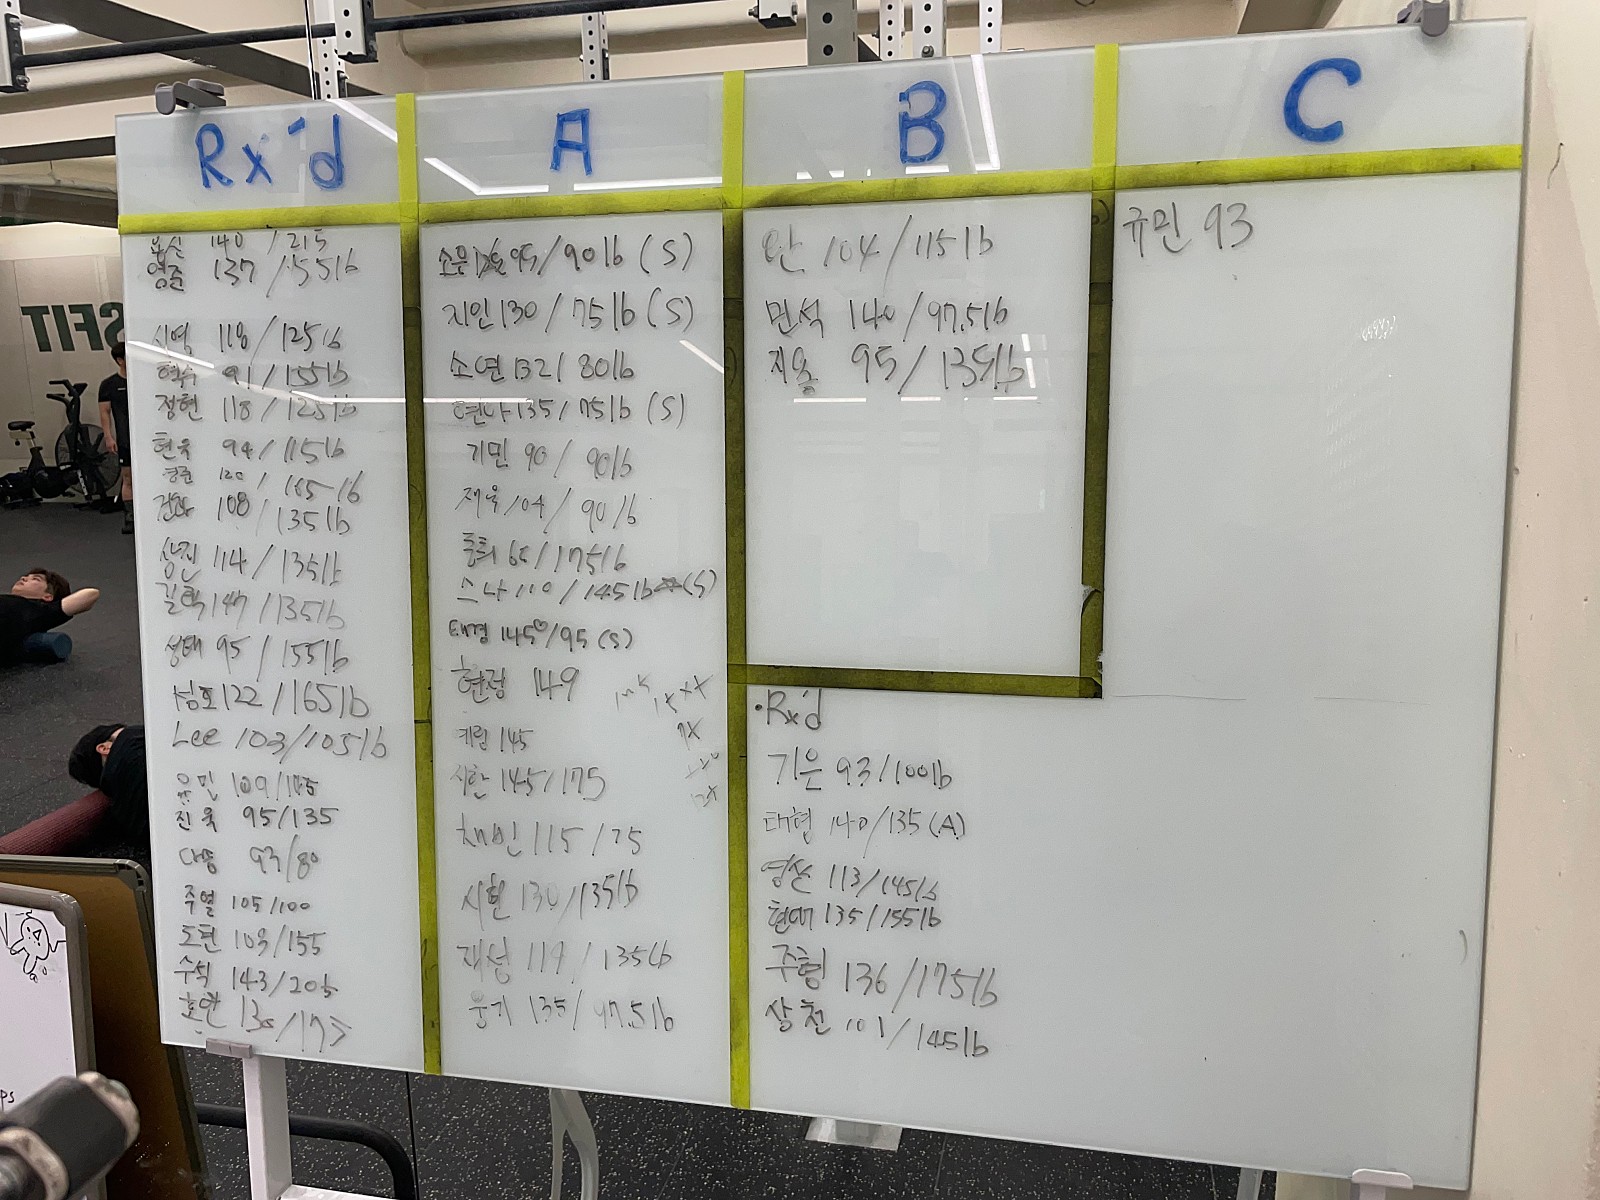 Rx'd
용신 140 / 215
영준 137 / 155lb
118 / 125lb
91 / 155lb
정현 118 / 125lb
현욱 94 / 115lb
120 / 165lb
108 / 135lb
상진 114 / 135lb
길혁 147 / 135lb
성태 95 / 155lb
성호 122 / 165lb
Lee 103/105lb
유민 109/145
진욱 95/135
93/80
주열 105/100
도현 103/155
수식 143/205
호안 130/175
A
95/90lb (S)
지인 130 / 75lb (S)
소연 132 / 80lb
현나 135 / 75lb (S)
기민 90 / 90lb
재욱 104 / 90lb
65/175lb
스나 110 / 145lb (S)
태경 145/95 (S)
현정 149
145
시완 145/175
채빈 115 / 75
시현 130/135lb
재성 119 / 135lb
웅기 135/97.5lb
B
104 / 115lb
민석 140/97.5lb
지용 95/135lb
C
규민 93
•Rx'd
기은 93/100lb
태현 140/135 (A)
영산 113/145lb
현대 135/155lb
주형 136/175lb
상천 101/145lb
SFIT
ps